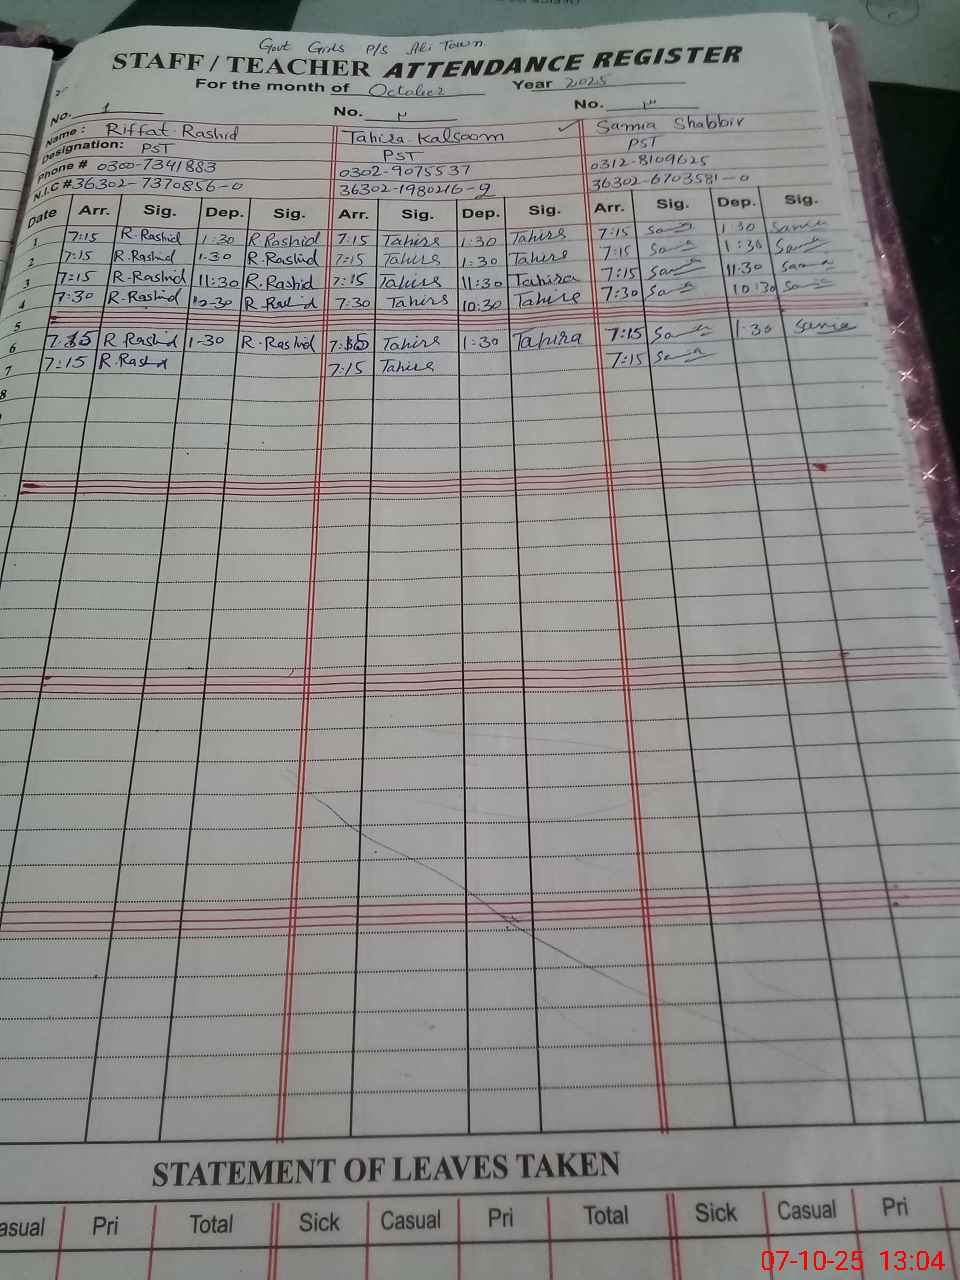 Govt Girls P/S Ali Town
STAFF / TEACHER ATTENDANCE REGISTER
For the month of October Year 2025
No. 1 No. ٢ No. ٣
Name: Riffat Rashid Tahira Kalsoom Samia Shabbir
Designation: PST PST PST
Phone # 0300-7341883 0302-9075537 0312-8109625
N.I.C # 36302-7370856-0 36302-1980216-2 36302-6703581-0
Date Arr. Sig. Dep. Sig. Arr. Sig. Dep. Sig. Arr. Sig. Dep. Sig.
1 7:15 R.Rashid 1:30 R.Rashid 7:15 Tahira 1:30 Tahira 7:15 Samia 1:30 Samia
2 7:15 R.Rashid 1-30 R.Rashid 7:15 Tahira 1:30 Tahira 7:15 Samia 1:30 Samia
3 7:15 R-Rashid 11:30 R.Rashid 7:15 Tahira 11:30 Tahira 7:15 Samia 11:30 Samia
4 7:30 R-Rashid 10-30 R Rashid 7:30 Tahira 10:30 Tahira 7:30 Samia 10:30 Samia
5
6 7:15 R Rashid 1-30 R.Rashid 7:15 Tahira 1:30 Tahira 7:15 Samia 1:30 Samia
7 7:15 R.Rashid 7:15 Tahira 7:15 Samia
8
STATEMENT OF LEAVES TAKEN
asual Pri Total Sick Casual Pri Total Sick Casual Pri
07-10-25 13:04